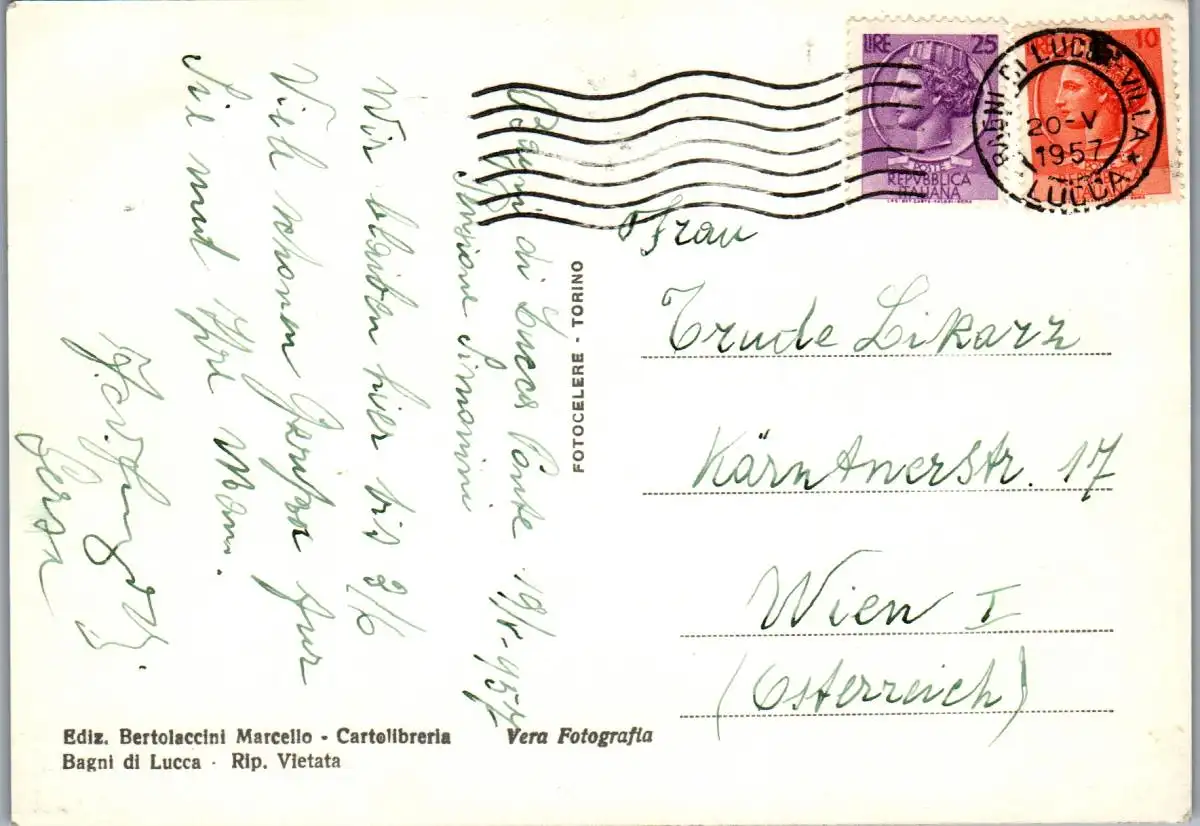 LIRE 25
POSTE
REPVBBLICA
ITALIANA
10
BAGNI DI LUCCA VILLA
20-V
1957
LUCCA
Bagni di Lucca Ponte 19/V-1957
Pensione Simonini
Wir bleiben hier bis 2/6
Viele schönen Grüße für
Sie und Ihre Mam.
Frau
Trude Likarz
Kärntnerstr. 17
Wien I
(Österreich)
FOTOCELERE - TORINO
Ediz. Bertolaccini Marcello - Cartolibreria
Vera Fotografia
Bagni di Lucca - Rip. Vietata